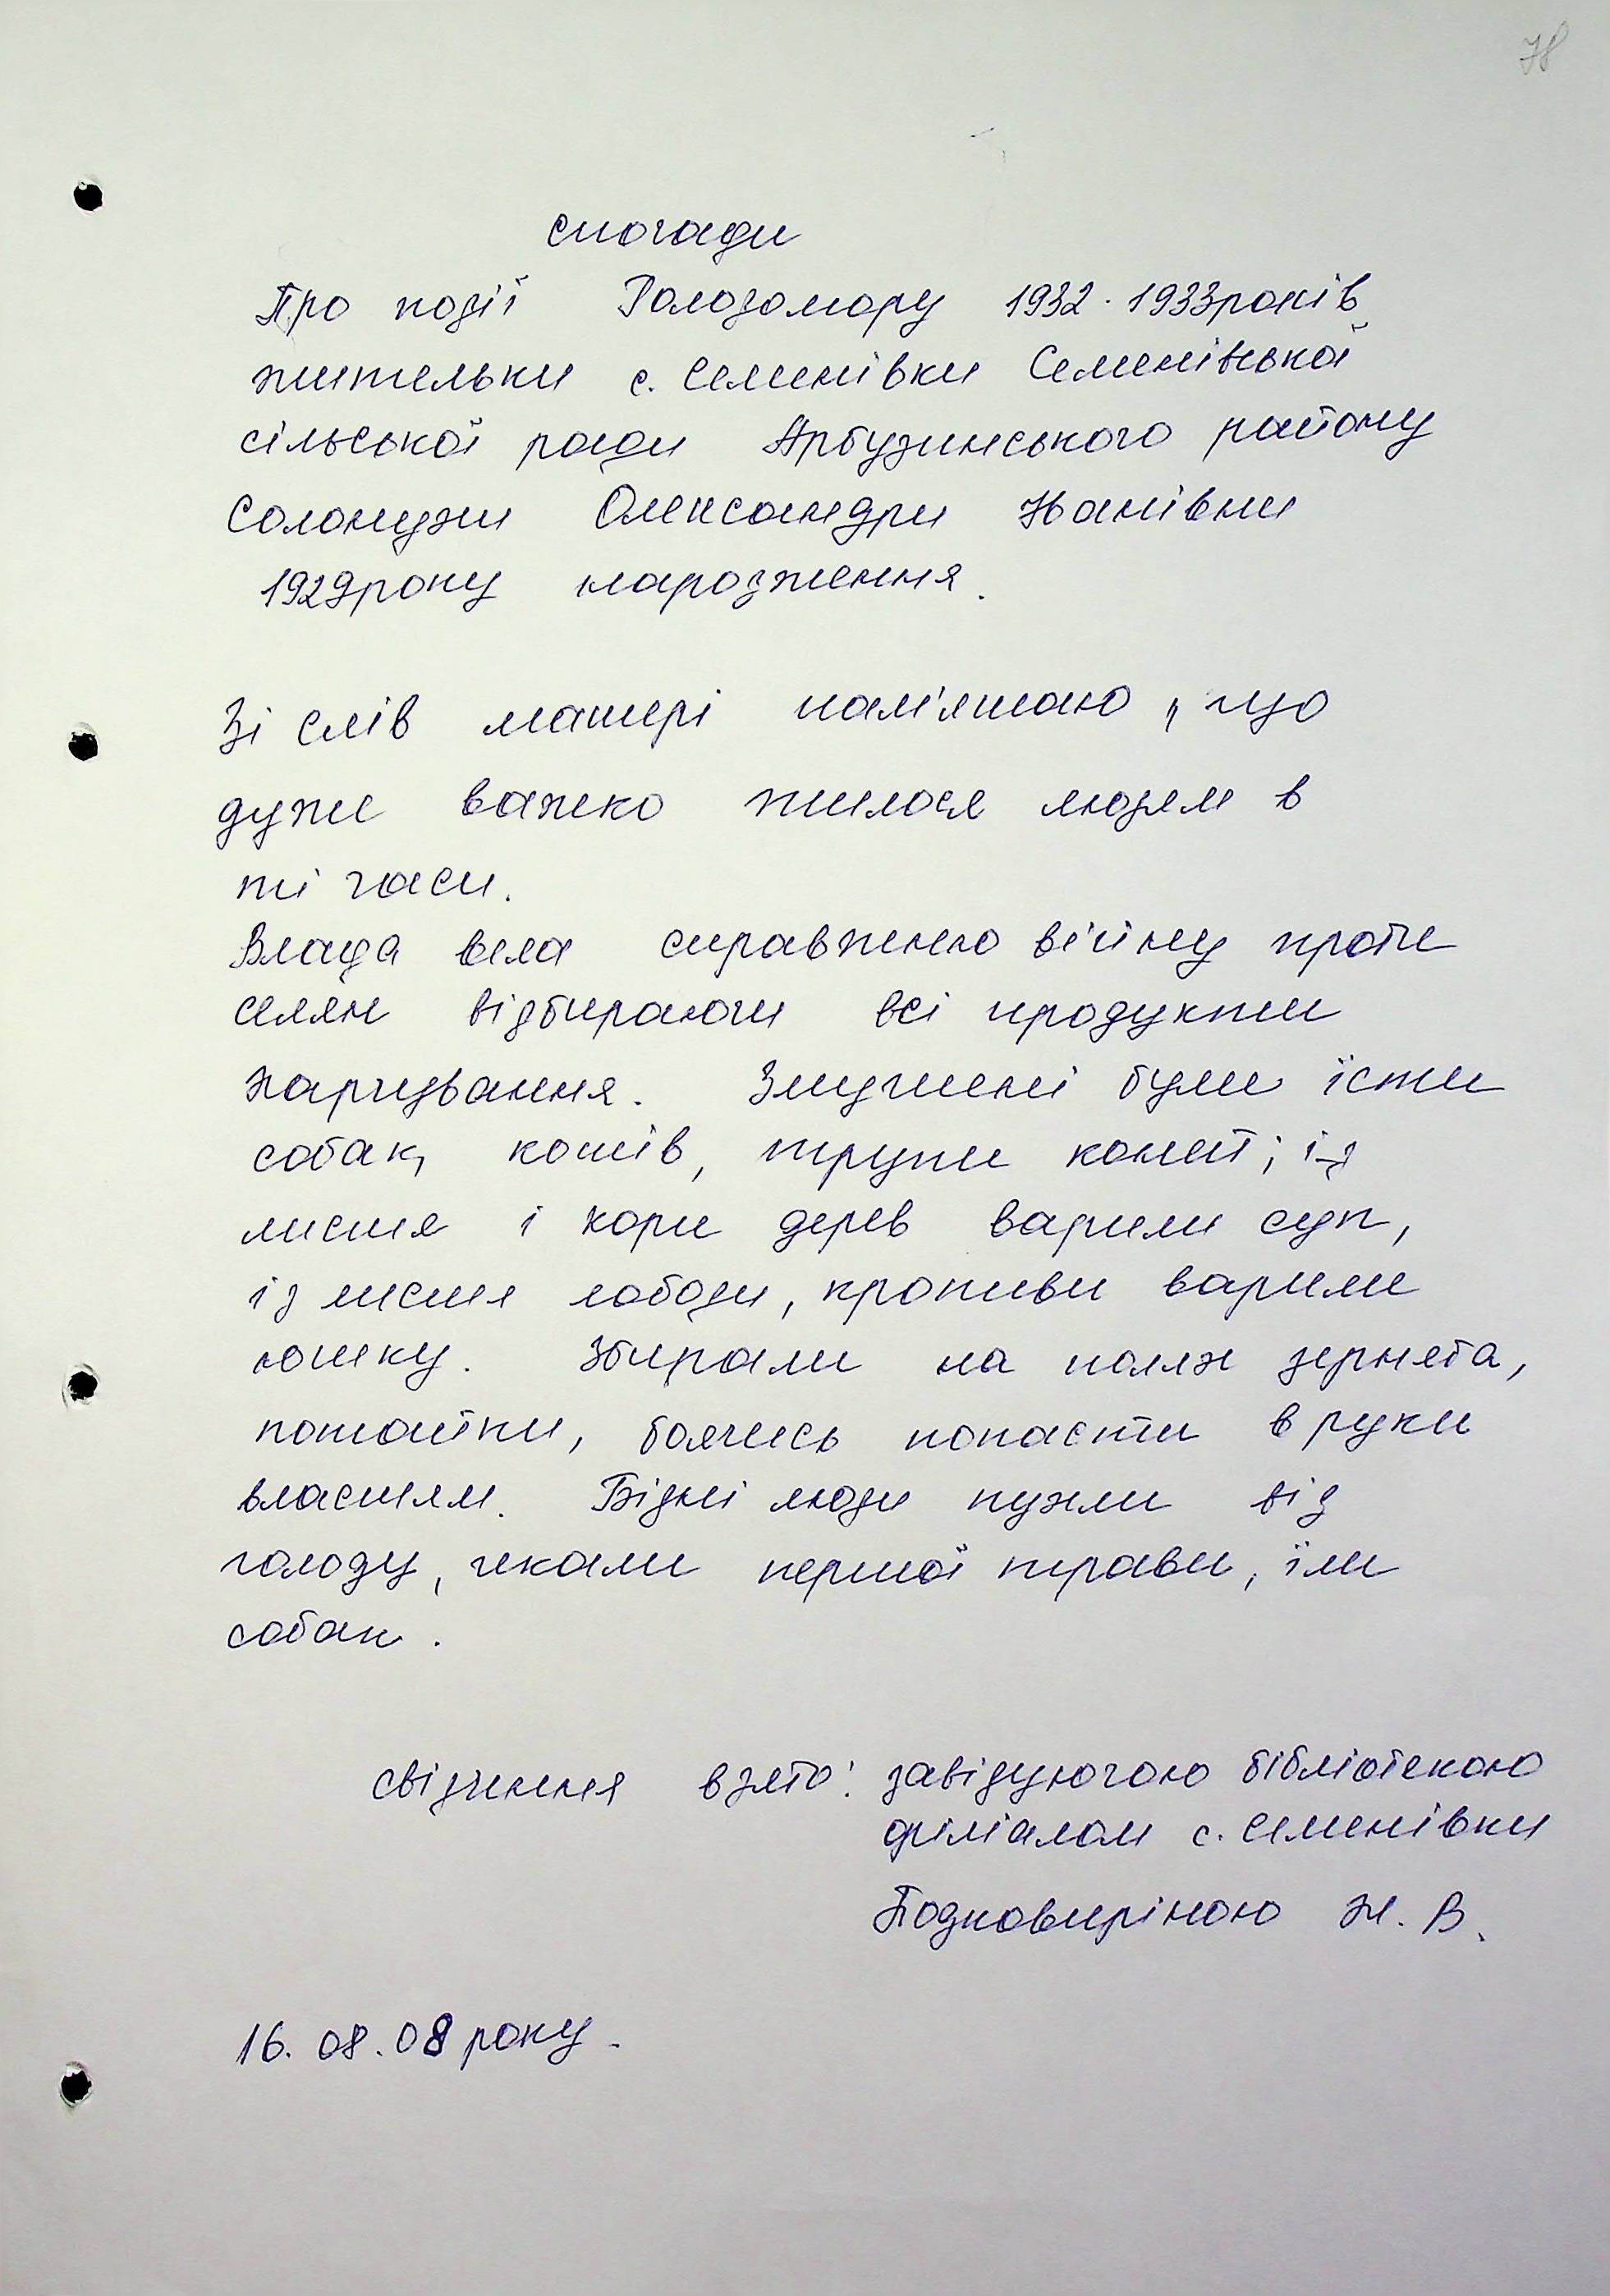 78
спогади
Про події Голодомору 1932-1933років
жительки с. Семенівки Семенівської
сільської ради Арбузинського району
Соломухи Олександри Іванівни
1929року народження.
Зі слів матері пам'ятаю, що
дуже важко жилося людям в
ті часи.
Влада вела справжню війну проти
селян відбираючи всі продукти
харчування. Змушені були їсти
собак, котів, трупи коней; із
листя і кори дерев варили суп,
із листя лободи, кропиви варили
юшку. Збирали на полях зернята,
потайки, боячись попасти в руки
властям. Бідні люди пухли від
голоду, чекали першої трави, їли
собак.
свідчення взято: завідуючою бібліотекою
філіалом с. Семенівки
Подковиріною Н. В.
16.08.08 року.